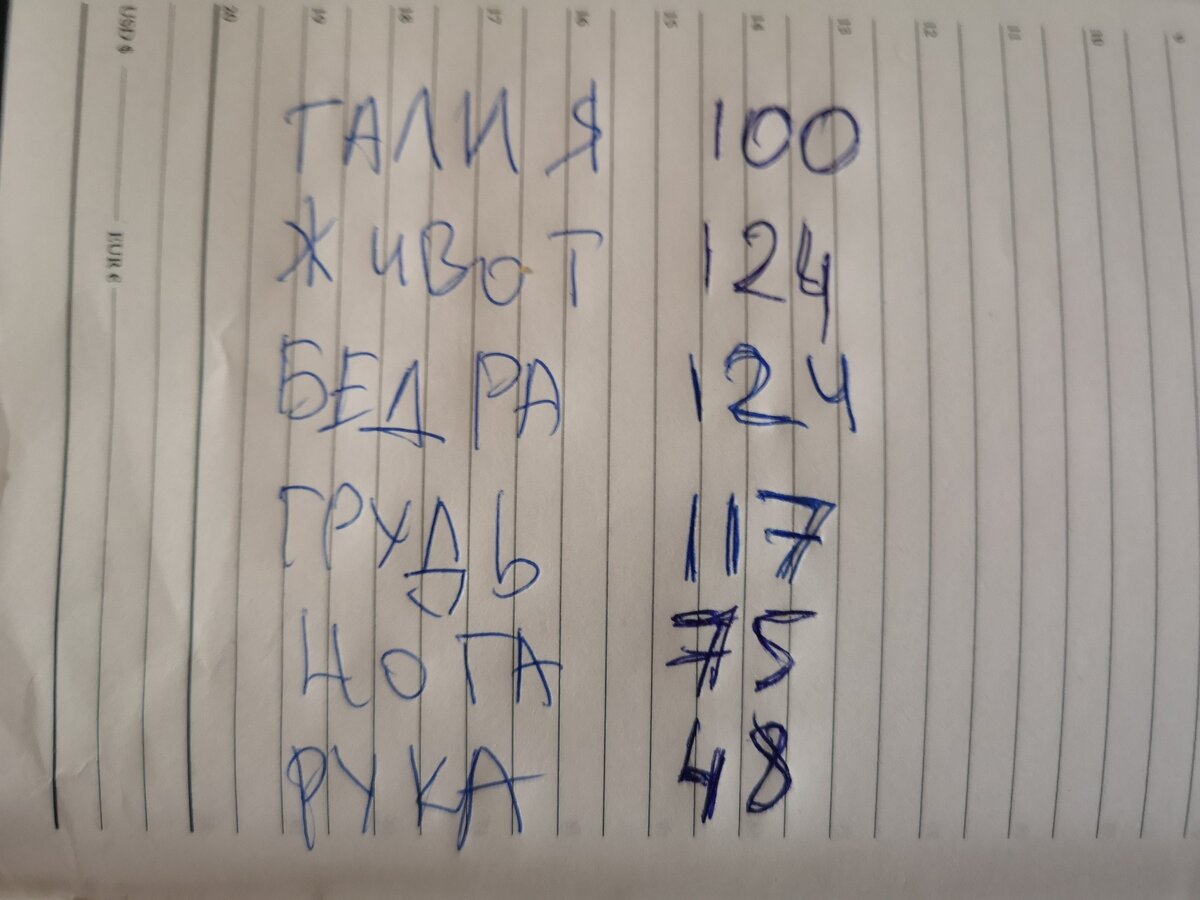 ТАЛИЯ 100
ЖИВОТ 124
БЕДРА 124
ГРУДЬ 117
НОГА 75
РУКА 48
USD $
EUR €
20
19
18
17
16
15
14
13
12
11
10
9